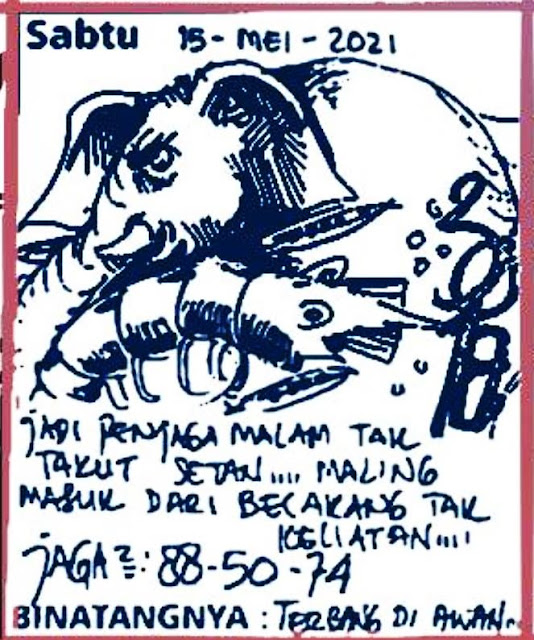 Sabtu 15-MEI-2021
JADI PENJAGA MALAM TAK
TAKUT SETAN.... MALING
MASUK DARI BELAKANG TAK
KELIATAN.....
JAGA²: 88-50-74
BINATANGNYA : TERBANG DI AWAN..